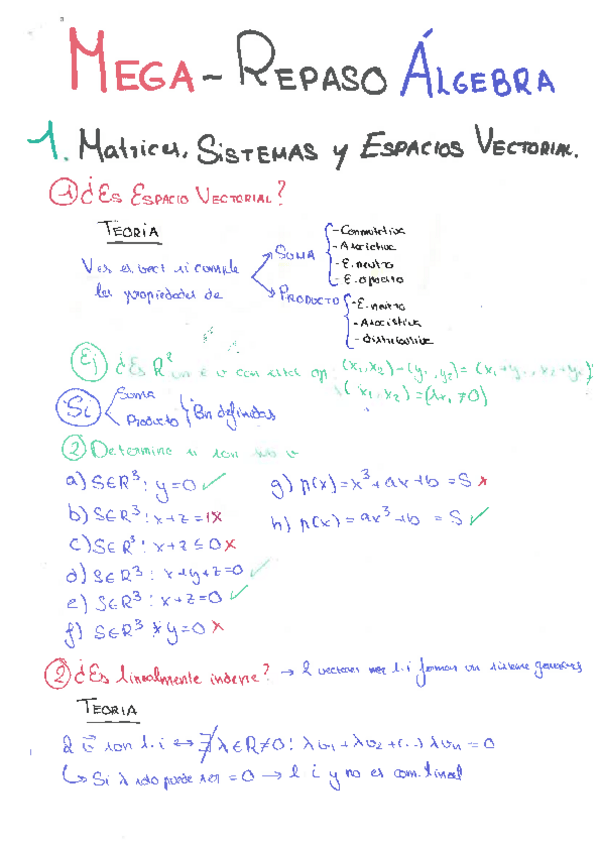 MEGA - REPASO ÁLGEBRA
1. Matrices, SISTEMAS y ESPACIOS VECTORIAL.
1 ¿Es ESPACIO VECTORIAL?
TEORÍA
Ver es vect si cumple
las propiedades de
SUMA
- Conmutativa
- Asociativa
- E. neutro
- E. opuesto
PRODUCTO
- E. neutro
- Asociativa
- distributiva
Ej ¿Es R² un e v con estas op
(x₁, x₂) - (y₁, y₂) =
(x₁, x₂) = (λx₁, 0)
Sí
Suma
Producto
Bn definidas
2 Determine si son sub v
a) S∈R³: y=0 ✓
b) S∈R³: x+z=1 X
c) S∈R³: x+z≤0 X
d) S∈R³: x+y+z=0 ✓
e) S∈R³: x+z=0 ✓
f) S∈R³ xy=0 X
g) p(x)=x³+ax+b = S X
h) p(x)=ax³+b = S ✓
2 ¿Es linealmente indepe? → 2 vectores l.i forman un sistema
TEORIA
2 v⃗ son l.i ↔ ∄ λ∈R≠0: λv₁+λv₂+(..) λvₙ=0
↳ Si λ solo puede ser =0 → l i y no es com. lineal